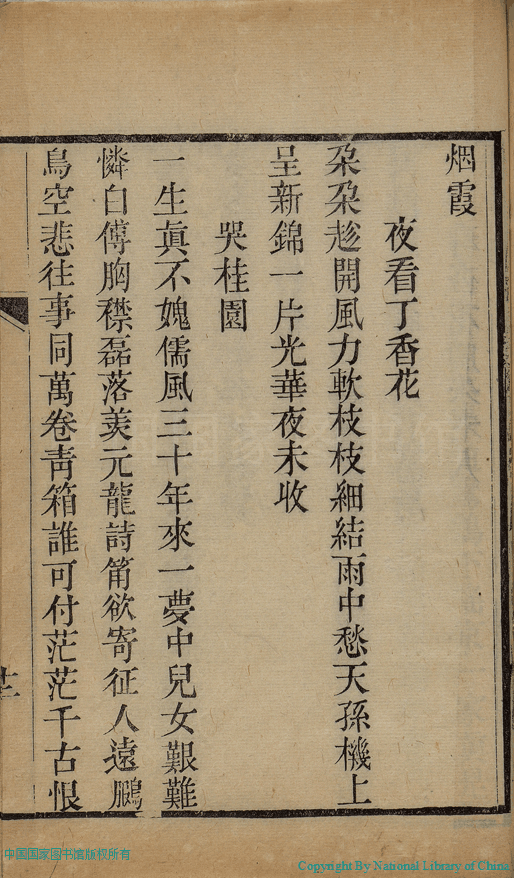 烟霞
夜看丁香花
朶朶趂開風力軟枝枝細結雨中愁天孫機上
呈新錦一片光華夜未收
哭桂園
一生眞不媿儒風三十年來一夢中兒女艱難
憐白傅胸襟磊落羨元龍詩筩欲寄征人遠鵩
鳥空悲往事同萬卷靑箱誰可付茫茫千古恨
中国国家图书馆版权所有
Copyright By National Library of China